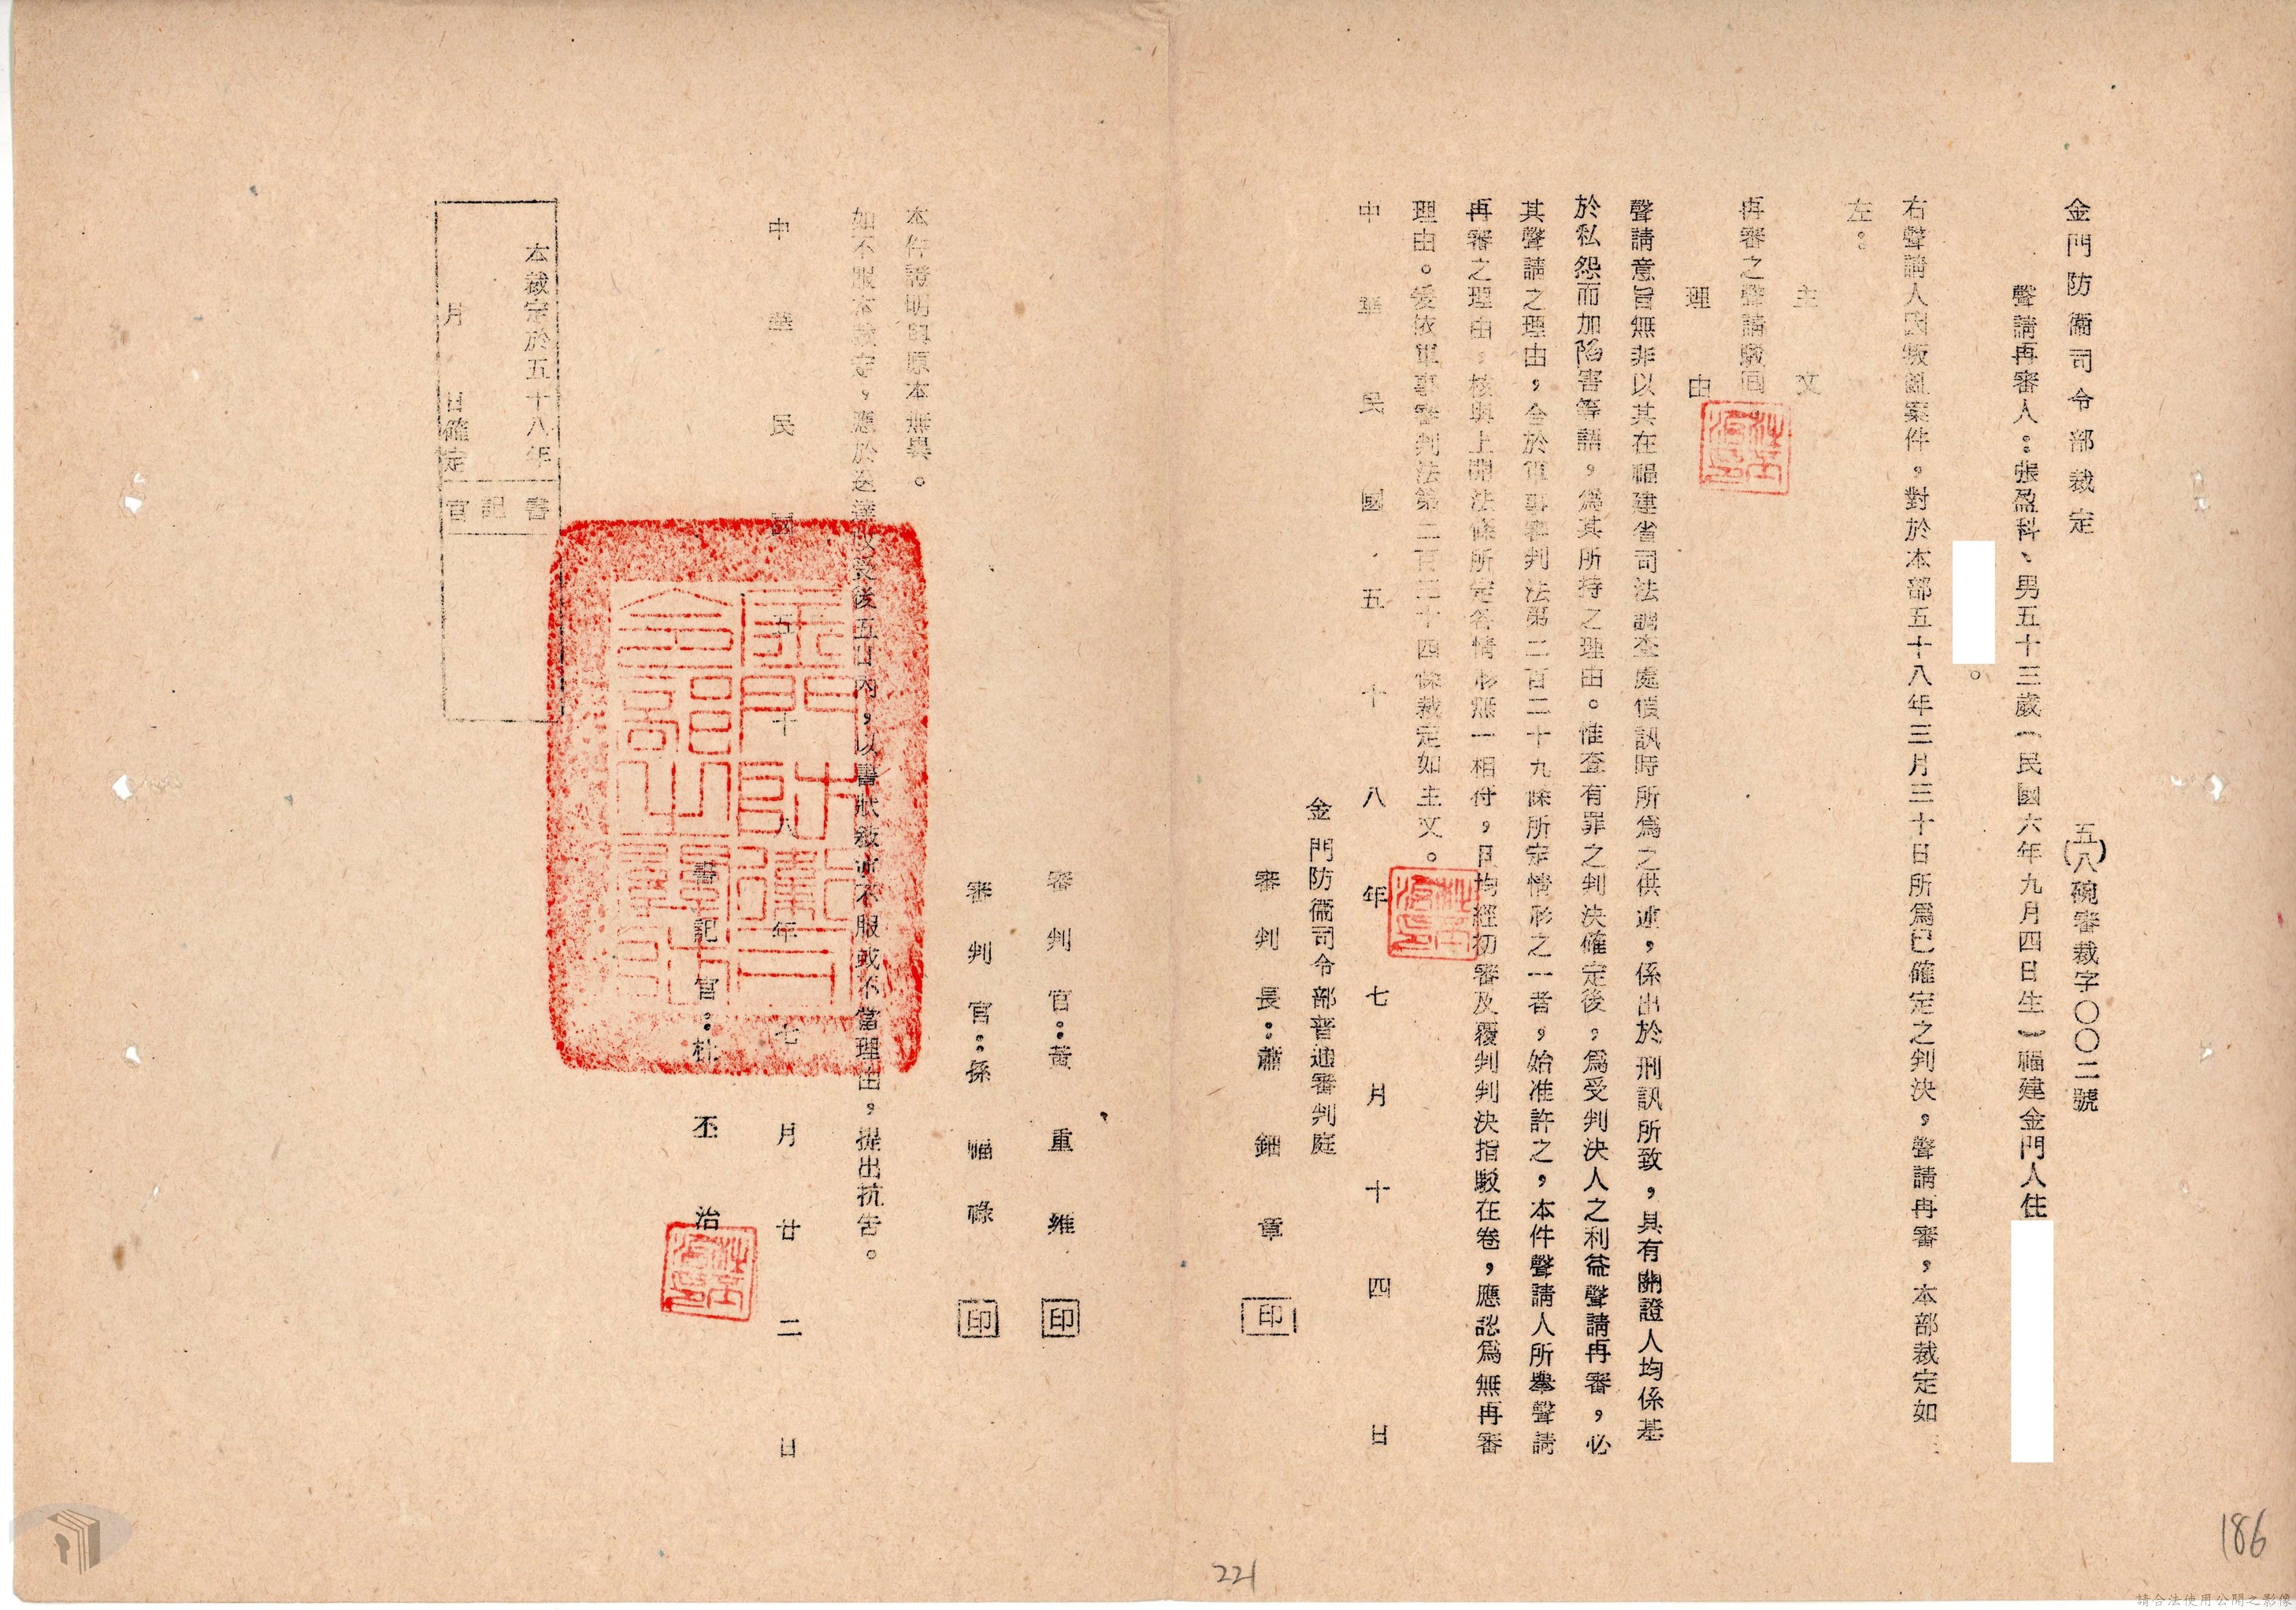 金門防衞司令部裁定
五(八)碗審裁字〇〇二號
聲請再審人：張盈科、男五十三歲（民國六年九月四日生）福建金門人住
。
右聲請人因叛亂案件，對於本部五十八年三月三十日所爲已確定之判決，聲請再審，本部裁定如
左：
主文
再審之聲請駁回。
理由
聲請意旨無非以其在福建省司法調查處偵訊時所爲之供述，係出於刑訊所致，具有關證人均係基
於私怨而加陷害等語，爲其所持之理由。惟查有罪之判決確定後，爲受判決人之利益聲請再審，必
其聲請之理由，合於軍事審判法第二百二十九條所定情形之一者，始准許之，本件聲請人所舉聲請
再審之理由，核與上開法條所定各情形無一相符，且均經初審及覆判判決指駁在卷，應認爲無再審
理由。爰依軍事審判法第二百三十四條裁定如主文。
中華民國五十八年七月十四日
金門防衞司令部普通審判庭
審判長：蕭鈿章 印
審判官：黃重維 印
審判官：孫幅祿 印
本件證明與原本無異。
如不服本裁定，應於送達收受後五日內，以書狀敍述不服或不當理由，提出抗告。
中華民國五十八年七月廿二日
書記官：杜丕治
本裁定於五十八年
月 日確定
書記官
金門防衛司令部之
221
186
請合法使用公開之影像